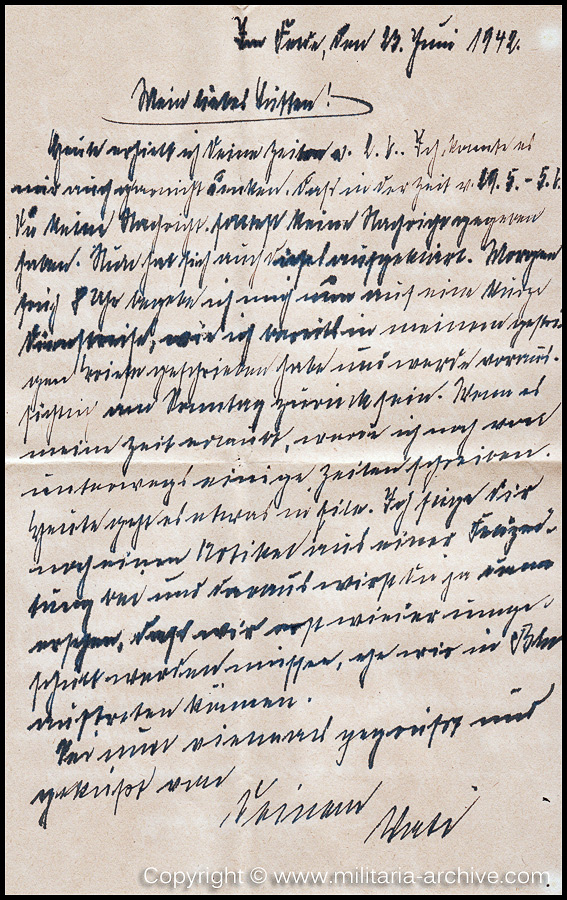 Im Felde, den 23. Juni 1942.
Mein liebes Lütten!
Heute erhielt ich Deine Zeilen v. 2.6.. Ich konnte es
mir auch garnicht denken, dass in der Zeit v. 29.5. - 5.6.
Du keine Nachricht keine Nachricht gegeben
haben. Nun hat sich auch aufgeklärt. Morgen
früh 8 Uhr begebe ich mich nun auf eine kurze
Dienstreise, wie ich bereits in meinem gestri-
gen Briefe geschrieben habe und werde voraus-
sichtlich am Sonntag zurück sein. Wenn es
meine Zeit erlaubt, werde ich noch von
unterwegs einige Zeilen schreiben.
Heute geht es etwas in Eile. Ich füge Dir
noch einen Artikel aus einer
tung bei und daraus wirst Du ja
ersehen, dass wir erst wieder umge-
schult werden müssen, ehe wir in
auftreten können.
Sei nun vielmals gegrüßt und
geküßt von
Deinem
Vati
Copyright © www.militaria-archive.com